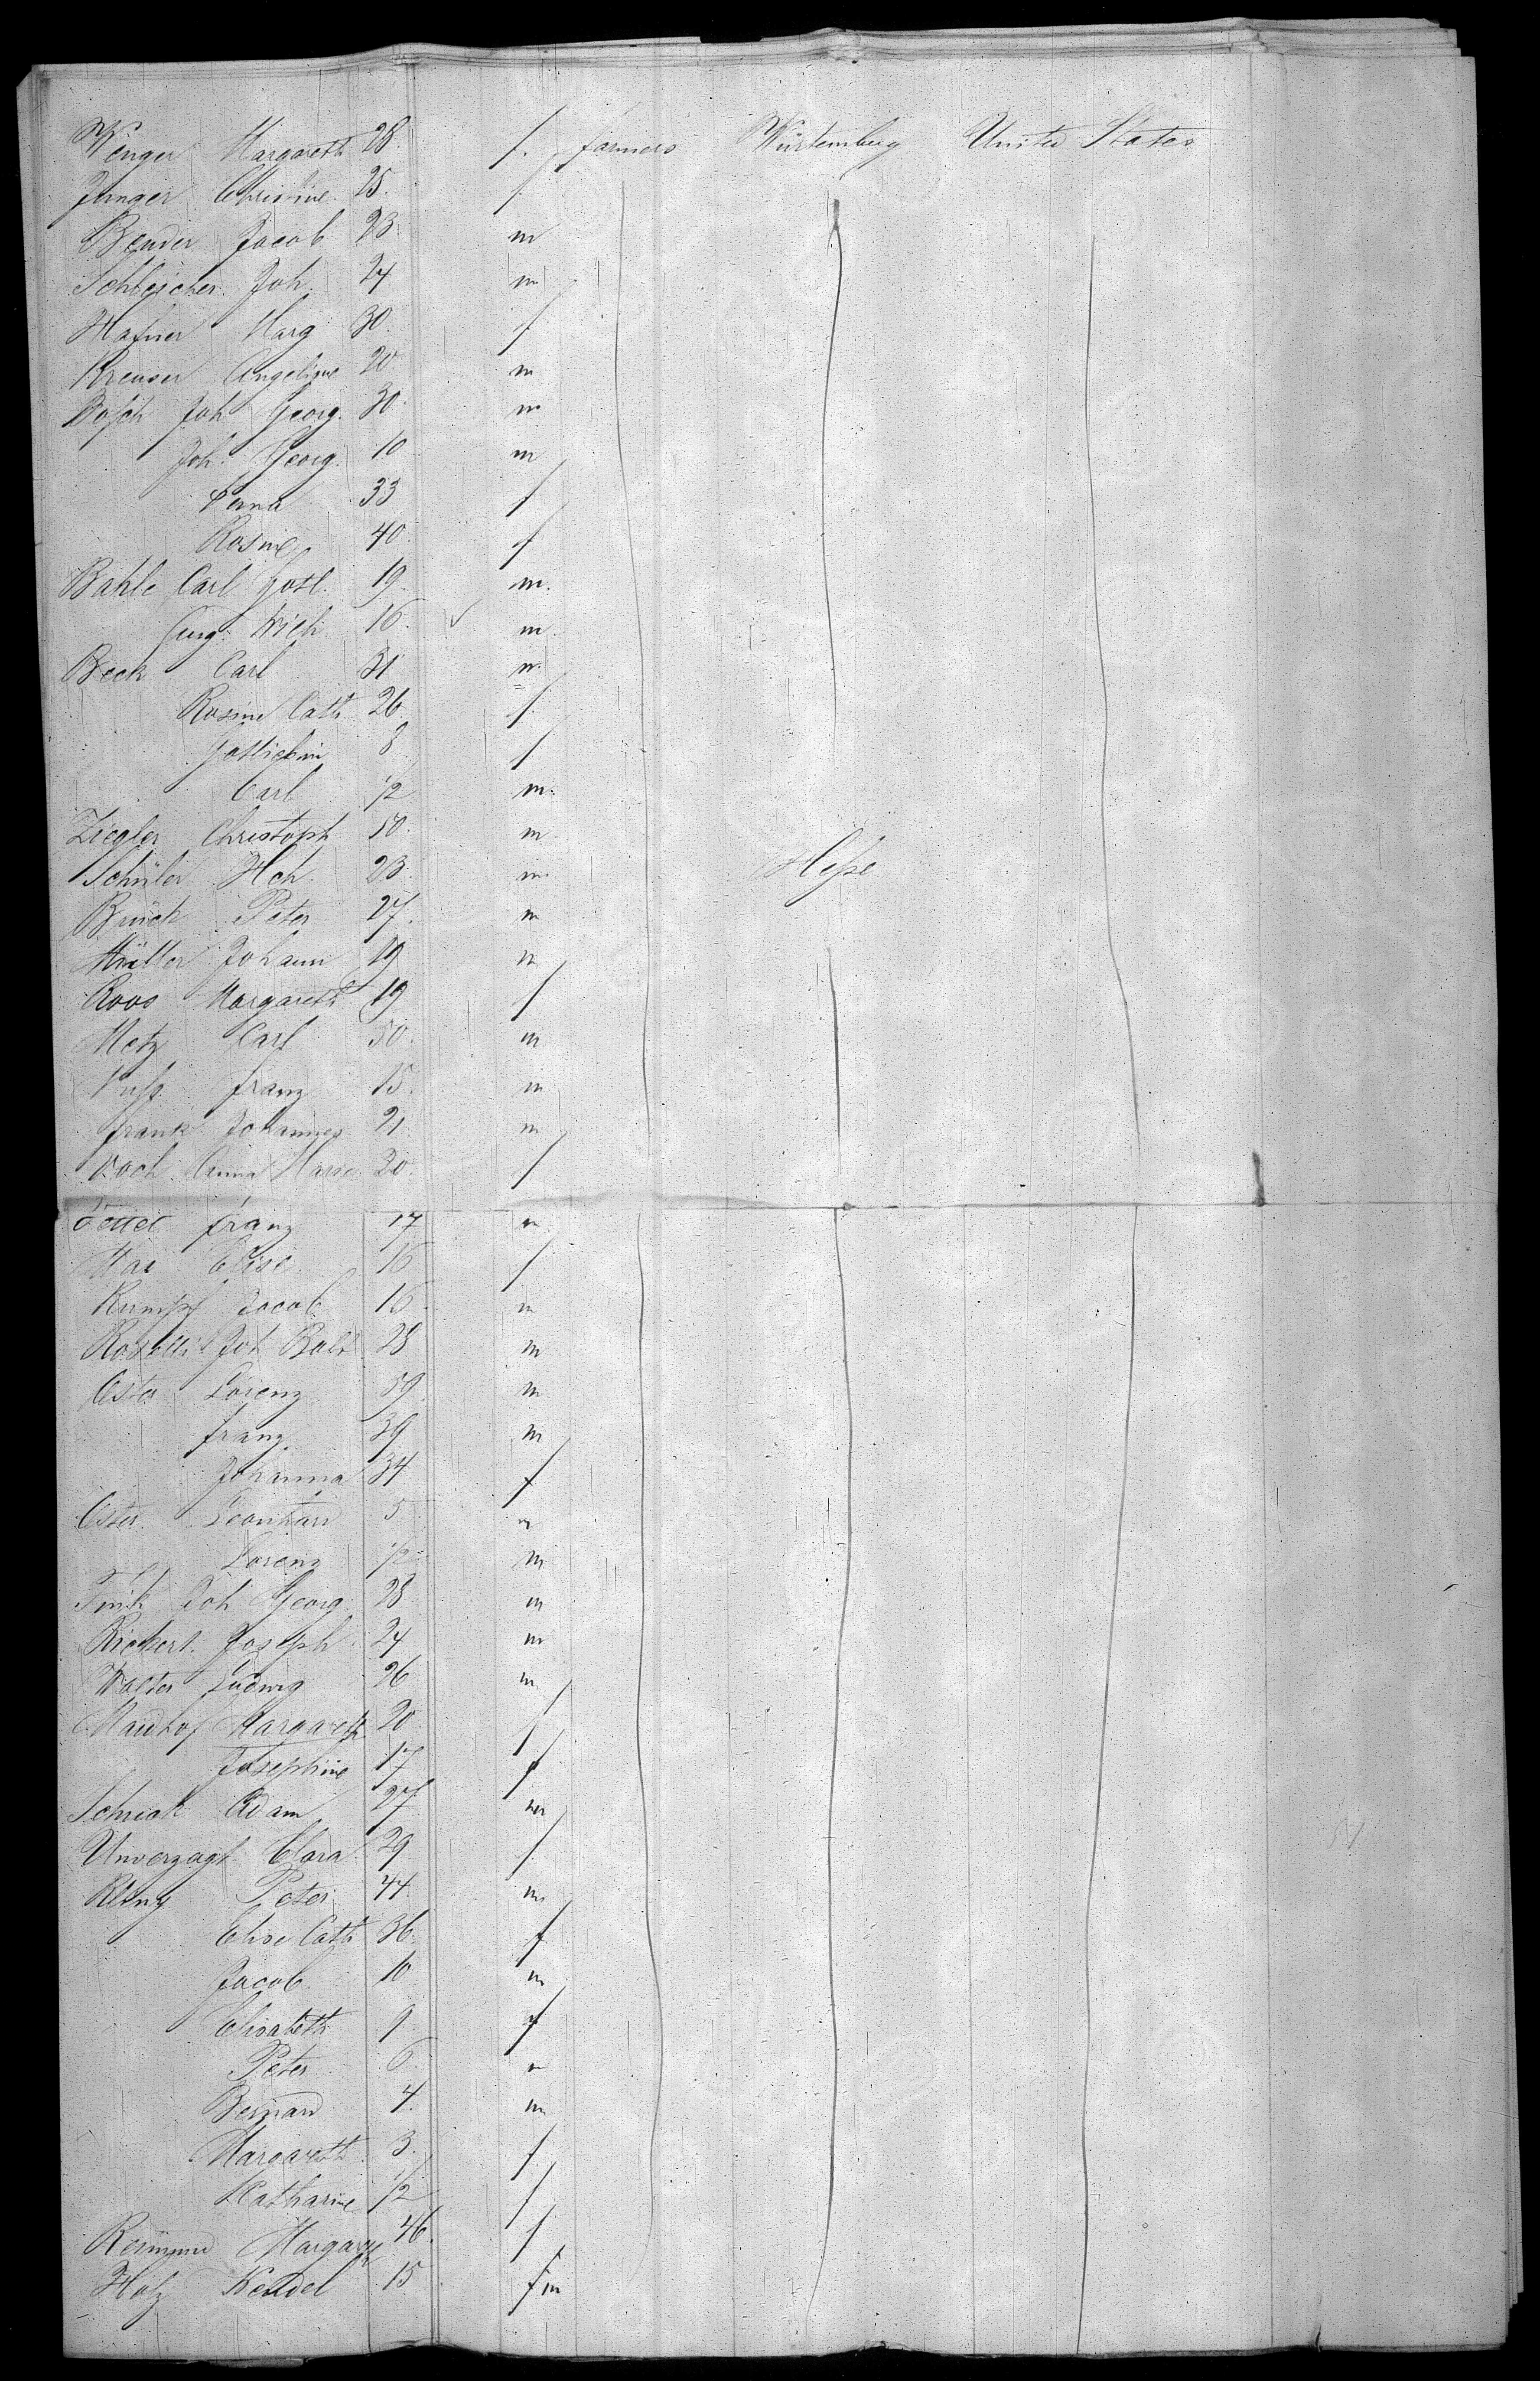 Wenger Margareth 28. f. farmers Würtemberg United States
Junger Christine 25. f
Bender Jacob 23. m
Schleicher Joh. 24 m
Hafner Marg 30. f
Kreuser Angelique 20. m
Bosch Joh Georg. 30 m
Joh. Georg. 10 m
33 f
Rosine 40. f
Bahle Carl Gotl. 19. m.
Wilh 16. m.
Beck Carl 31 m.
Rosine Cath 26 f.
Gottliebin 3 f
Carl 1/2 m.
Ziegler Christoph 50. m
Schüler Hch. 23. m. Hesse
Peter 27. m
Müller Johann 19 m
Roos Margareth 19 f
Metz Carl 50. m
Franz 15. m
Frank Johannes 21 m
Anna Marie 20. f
Franz 17 m
Elise 16 f
Rumpf Jacob 16. m
Joh Balt 28 m
Lorenz 59. m
Franz 39 m
Johanna 34 f
Leonhard 5 m
Lorenz 1/2 m
Fink Joh Georg 28 m
Rickert Joseph 24 m
Walter Ludwig 26 m
Margareth 20 f
Josephine 17 f
Adam 27 m
Unverzagt Clara 29 f
Kling Peter 44 m
Elise Cath 36. f
Jacob 10 m
Elisabeth 9 f
Peter 6 m
Bernard 4. m
Margareth 3. f
Katharine 1/2 f
Margareth 46. f
Holz Wendel 15 f m